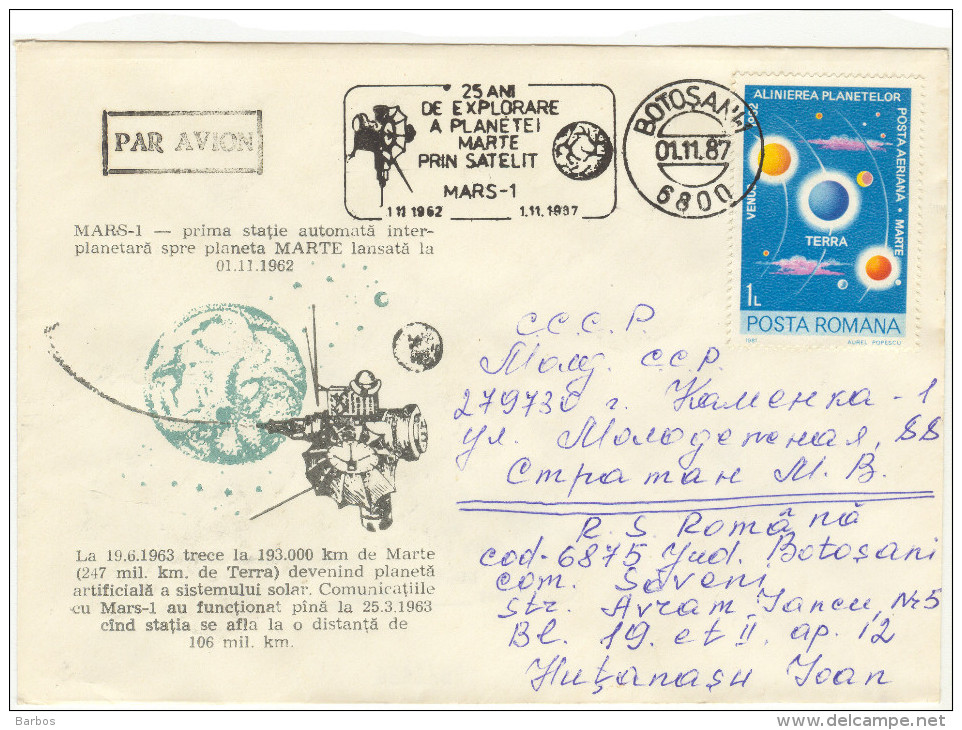 PAR AVION
25 ANI
DE EXPLORARE
A PLANETEI
MARTE
PRIN SATELIT
MARS-1
1 11 1962 1.11.1987
BOTOȘANI
01.11.87
6800
ALINIEREA PLANETELOR
1982
POSTA AERIANA • MARTE
VENUS
TERRA
1L
POSTA ROMANA
1981 AUREL POPESCU
MARS-1 — prima stație automată inter-
planetară spre planeta MARTE lansată la
01.11.1962
С.С.С.Р.
Молд. ССР.
279730 г. Каменка-1
ул. Молодежная, 88
Стратан М. В.
R. S. Română
cod-6875 Jud. Botoșani
com. Săveni
str. Avram Iancu, Nr 5
Bl. 19. et II. ap. 12
Huțanașu Ioan
La 19.6.1963 trece la 193.000 km de Marte
(247 mil. km. de Terra) devenind planetă
artificială a sistemului solar. Comunicațiile
cu Mars-1 au funcționat pînă la 25.3.1963
cînd stația se afla la o distanță de
106 mil. km.
Barbos
www.delcampe.net